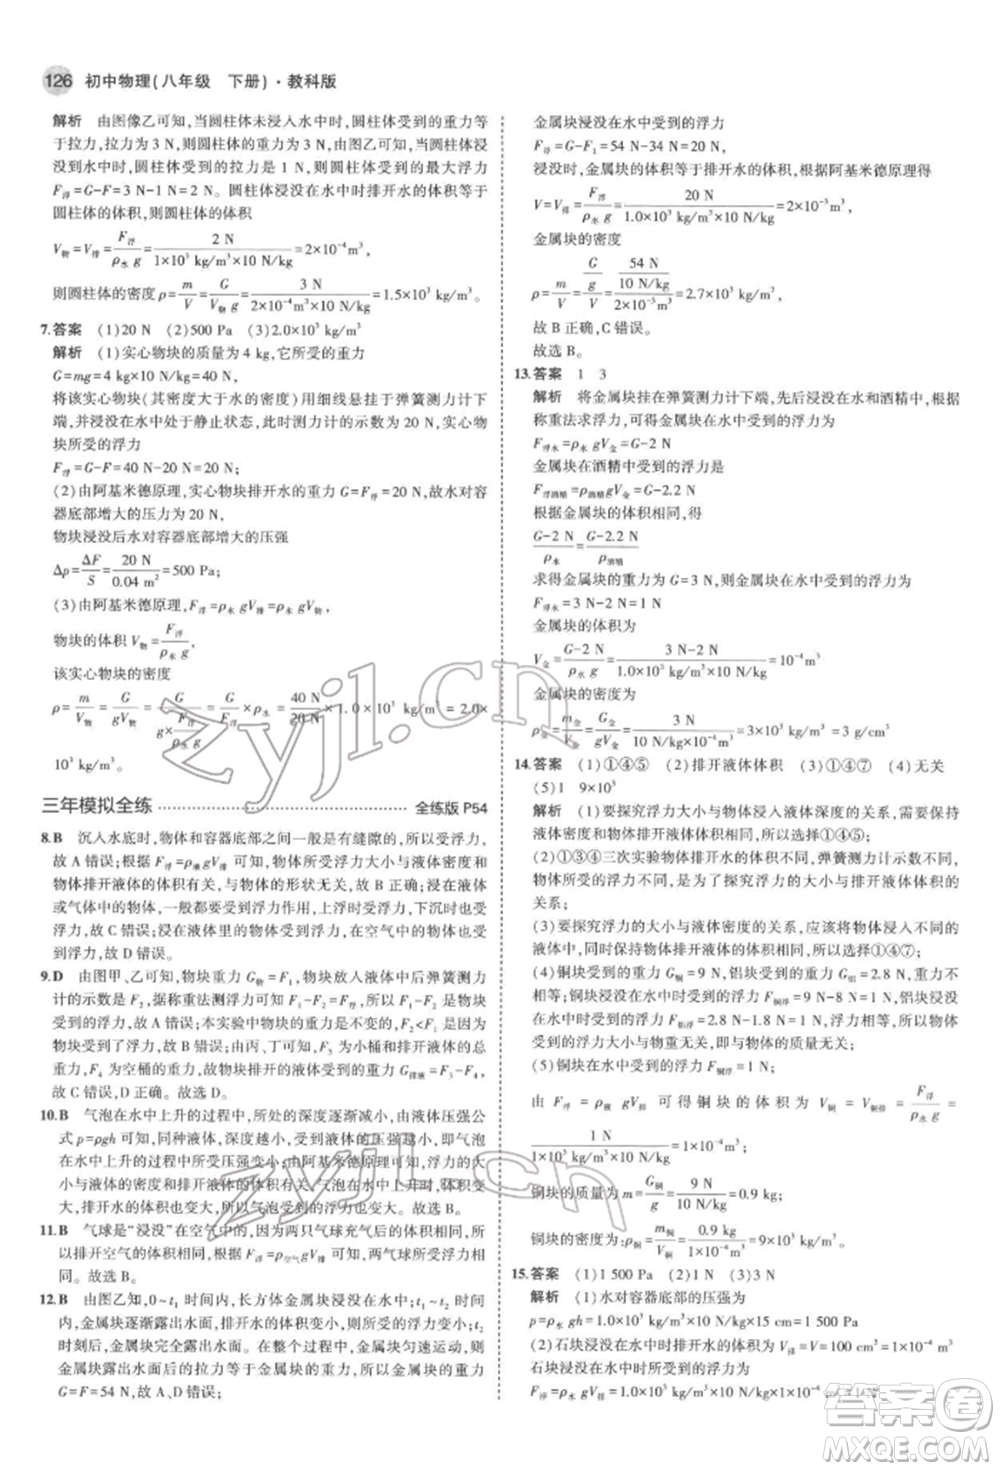 126 初中物理(八年级 下册)·教科版
解析 由图像乙可知,当圆柱体未浸入水中时,圆柱体受到的重力等
于拉力,拉力为 3 N,则圆柱体的重力为 3 N,由图乙可知,当圆柱体浸
没到水中时,圆柱体受到的拉力是 1 N,则圆柱体受到的最大浮力
F浮=G-F=3 N-1 N=2 N。圆柱体浸没在水中时排开水的体积等于
圆柱体的体积,则圆柱体的体积
V物=V排=F浮/(ρ水 g)=2 N/(1×10³ kg/m³×10 N/kg)=2×10⁻⁴ m³,
则圆柱体的密度ρ=m/V=G/(V物 g)=3 N/(2×10⁻⁴ m³×10 N/kg)=1.5×10³ kg/m³。
7.答案 (1)20 N (2)500 Pa (3)2.0×10³ kg/m³
解析 (1)实心物块的质量为 4 kg,它所受的重力
G=mg=4 kg×10 N/kg=40 N,
将该实心物块(其密度大于水的密度)用细线悬挂于弹簧测力计下
端,并浸没在水中处于静止状态,此时测力计的示数为 20 N,实心物
块所受的浮力
F浮=G-F=40 N-20 N=20 N;
(2)由阿基米德原理,实心物块排开水的重力 G=F浮=20 N,故水对容
器底部增大的压力为 20 N,
物块浸没后水对容器底部增大的压强
Δp=ΔF/S=20 N/0.04 m²=500 Pa;
(3)由阿基米德原理,F浮=ρ水 gV排=ρ水 gV物,
物块的体积 V物=F浮/(ρ水 g),
该实心物块的密度
ρ=m/V物=G/(gV物)=G/(g×F浮/(ρ水 g))=G/F浮×ρ水=40 N/20 N×1.0×10³ kg/m³=2.0×
10³ kg/m³。
三年模拟全练 全练版 P54
8.B 沉入水底时,物体和容器底部之间一般是有缝隙的,所以受浮力,
故 A 错误;根据 F浮=ρ液gV排 可知,物体受到的浮力与液体的密度
和物体排开液体的体积有关,与物体的形状无关,故 B 正确;在液体
或气体中的物体,一般都受到浮力作用,上浮时受浮力,下沉时也受
浮力,故 C 错误;浸在液体里的物体受到浮力,在空气中的物体也受
浮力,故 D 错误。
9.D 由图甲、乙可知,物块重力 G物=F₁,物块放入液体中后弹簧测力
计的示数是 F₂,据称重法测浮力可知 F₁-F₂=F浮,所以浮力是物块
受到的,故 A 错误;本实验中物块的重力是不变的,F₂<F₁ 是因为物块
受到浮力,故 B 错误;由丙、丁可知,F₃ 为小桶和排开的液体的总重
力,F₄ 为空桶的重力,所以物块排开液体的重力 G排液=F₃-F₄,
故 C 错误,D 正确。故选 D。
10.B 气泡在水中上升的过程中,所处的深度逐渐减小,由液体压强公
式 p=ρgh 可知,同种液体,深度越小,气泡受到的压强越小,即气泡
在水中上升时,受到的压强变小;由阿基米德原理可知,浮力的大小
与排开水的体积有关,因为压强变小,气泡在上升时,体积变大,
排开水的体积也变大,所以气泡受到的浮力变大。故选 B。
11.B 气球是“浸没”在空气中的,因为两只气球充气后的体积相同,所
以排开空气的体积相同,根据 F浮=ρ空气gV排 可知,两气球所受浮力相
同。故选 B。
12.B 由图乙知,0~t₁ 时间内,长方体金属块浸没在水中;t₁~t₂ 时间
内,物体逐渐露出水面,金属块受到的浮力变小,拉力逐渐变大;t₂
时刻后,金属块完全露出水面。在整个过程中,金属块匀速运动,金
属块露出水面后的拉力等于金属块的重力,所以金属块的重力
G=F=54 N,故 A、D 错误;
金属块浸没在水中时受到的浮力
F浮=G-F₁=54 N-34 N=20 N,
浸没时,金属块的体积等于排开水的体积,根据阿基米德原理得
V=V排=F浮/(ρ水 g)=20 N/(1.0×10³ kg/m³×10 N/kg)=2×10⁻³ m³,
金属块的密度
ρ=m/V=(G/g)/V=(54 N/10 N/kg)/(2×10⁻³ m³)=2.7×10³ kg/m³,
故 B 正确,C 错误。
故选 B。
13.答案 1 3
解析 将金属块挂在弹簧测力计下端,先后浸没在水和酒精中,根据
称重法求浮力,可得金属块在水中受到的浮力是
F浮水=ρ水 gV金=G-2 N
金属块在酒精中受到的浮力是
F浮酒精=ρ酒精 gV金=G-2.2 N
根据金属块的体积相同,得
(G-2 N)/ρ水=(G-2.2 N)/ρ酒精
求得金属块的重力为 G=3 N,所以金属块在水中受到的浮力
F浮水=3 N-2 N=1 N
金属块的体积为
V金=(G-2 N)/(ρ水 g)=(3 N-2 N)/(1.0×10³ kg/m³×10 N/kg)=10⁻⁴ m³
金属块的密度为
ρ金=m金/V金=G金/(gV金)=3 N/(10 N/kg×10⁻⁴ m³)=3×10³ kg/m³=3 g/cm³
14.答案 (1)①④⑤ (2)排开液体体积 (3)①④⑦ (4)无关
(5)1 9×10³
解析 (1)要探究浮力大小与物体浸入液体深度的关系,应保持
液体密度和物体体积相同,所以应选①④⑤。
(2)①③④三次实验物体排开水的体积不同,弹簧测力计示数不同,
物体所受的浮力不同,是为了探究浮力大小与排开液体体积的
关系。
(3)要探究浮力的大小与液体密度的关系,应该将物体浸入不同的
液体中,同时保持物体排开液体的体积相同,所以选①④⑦。
(4)铜块的重力 G铜=9 N,铝块的重力为 G铝=2.8 N,由图可知,
铜块浸没在水中时受到的浮力 F铜浮=9 N-8 N=1 N,铝块浸没在水
中时受到的浮力 F铝浮=2.8 N-1.8 N=1 N,浮力相等,所以物体
受到的浮力大小与物重无关。
(5)铜块在水中受到的浮力 F铜浮=1 N
由 F浮=ρ液 gV排 可得铜块的体积为 V铜=V铜排=F浮/(ρ水 g)=
1 N/(1×10³ kg/m³×10 N/kg)=1×10⁻⁴ m³
铜块的质量为 m=G铜/g=9 N/(10 N/kg)=0.9 kg,
铜块的密度为:ρ铜=m铜/V铜=0.9 kg/(1×10⁻⁴ m³)=9×10³ kg/m³。
15.答案 (1)1 500 Pa (2)1 N (3)3 N
解析 (1)水对容器底部的压强为
p=ρ水 gh=1.0×10³ kg/m³×10 N/kg×15 cm=1 500 Pa
(2)石块浸没在水中时排开水的体积为 V排=V=100 cm³=1×10⁻⁴ m³
石块浸没在水中时受到的浮力为
F浮=ρ水 gV排=1.0×10³ kg/m³×10 N/kg×1×10⁻⁴ m³=1 N
zyjl.cn
zyjl.cn
答案圈
MXQE.COM